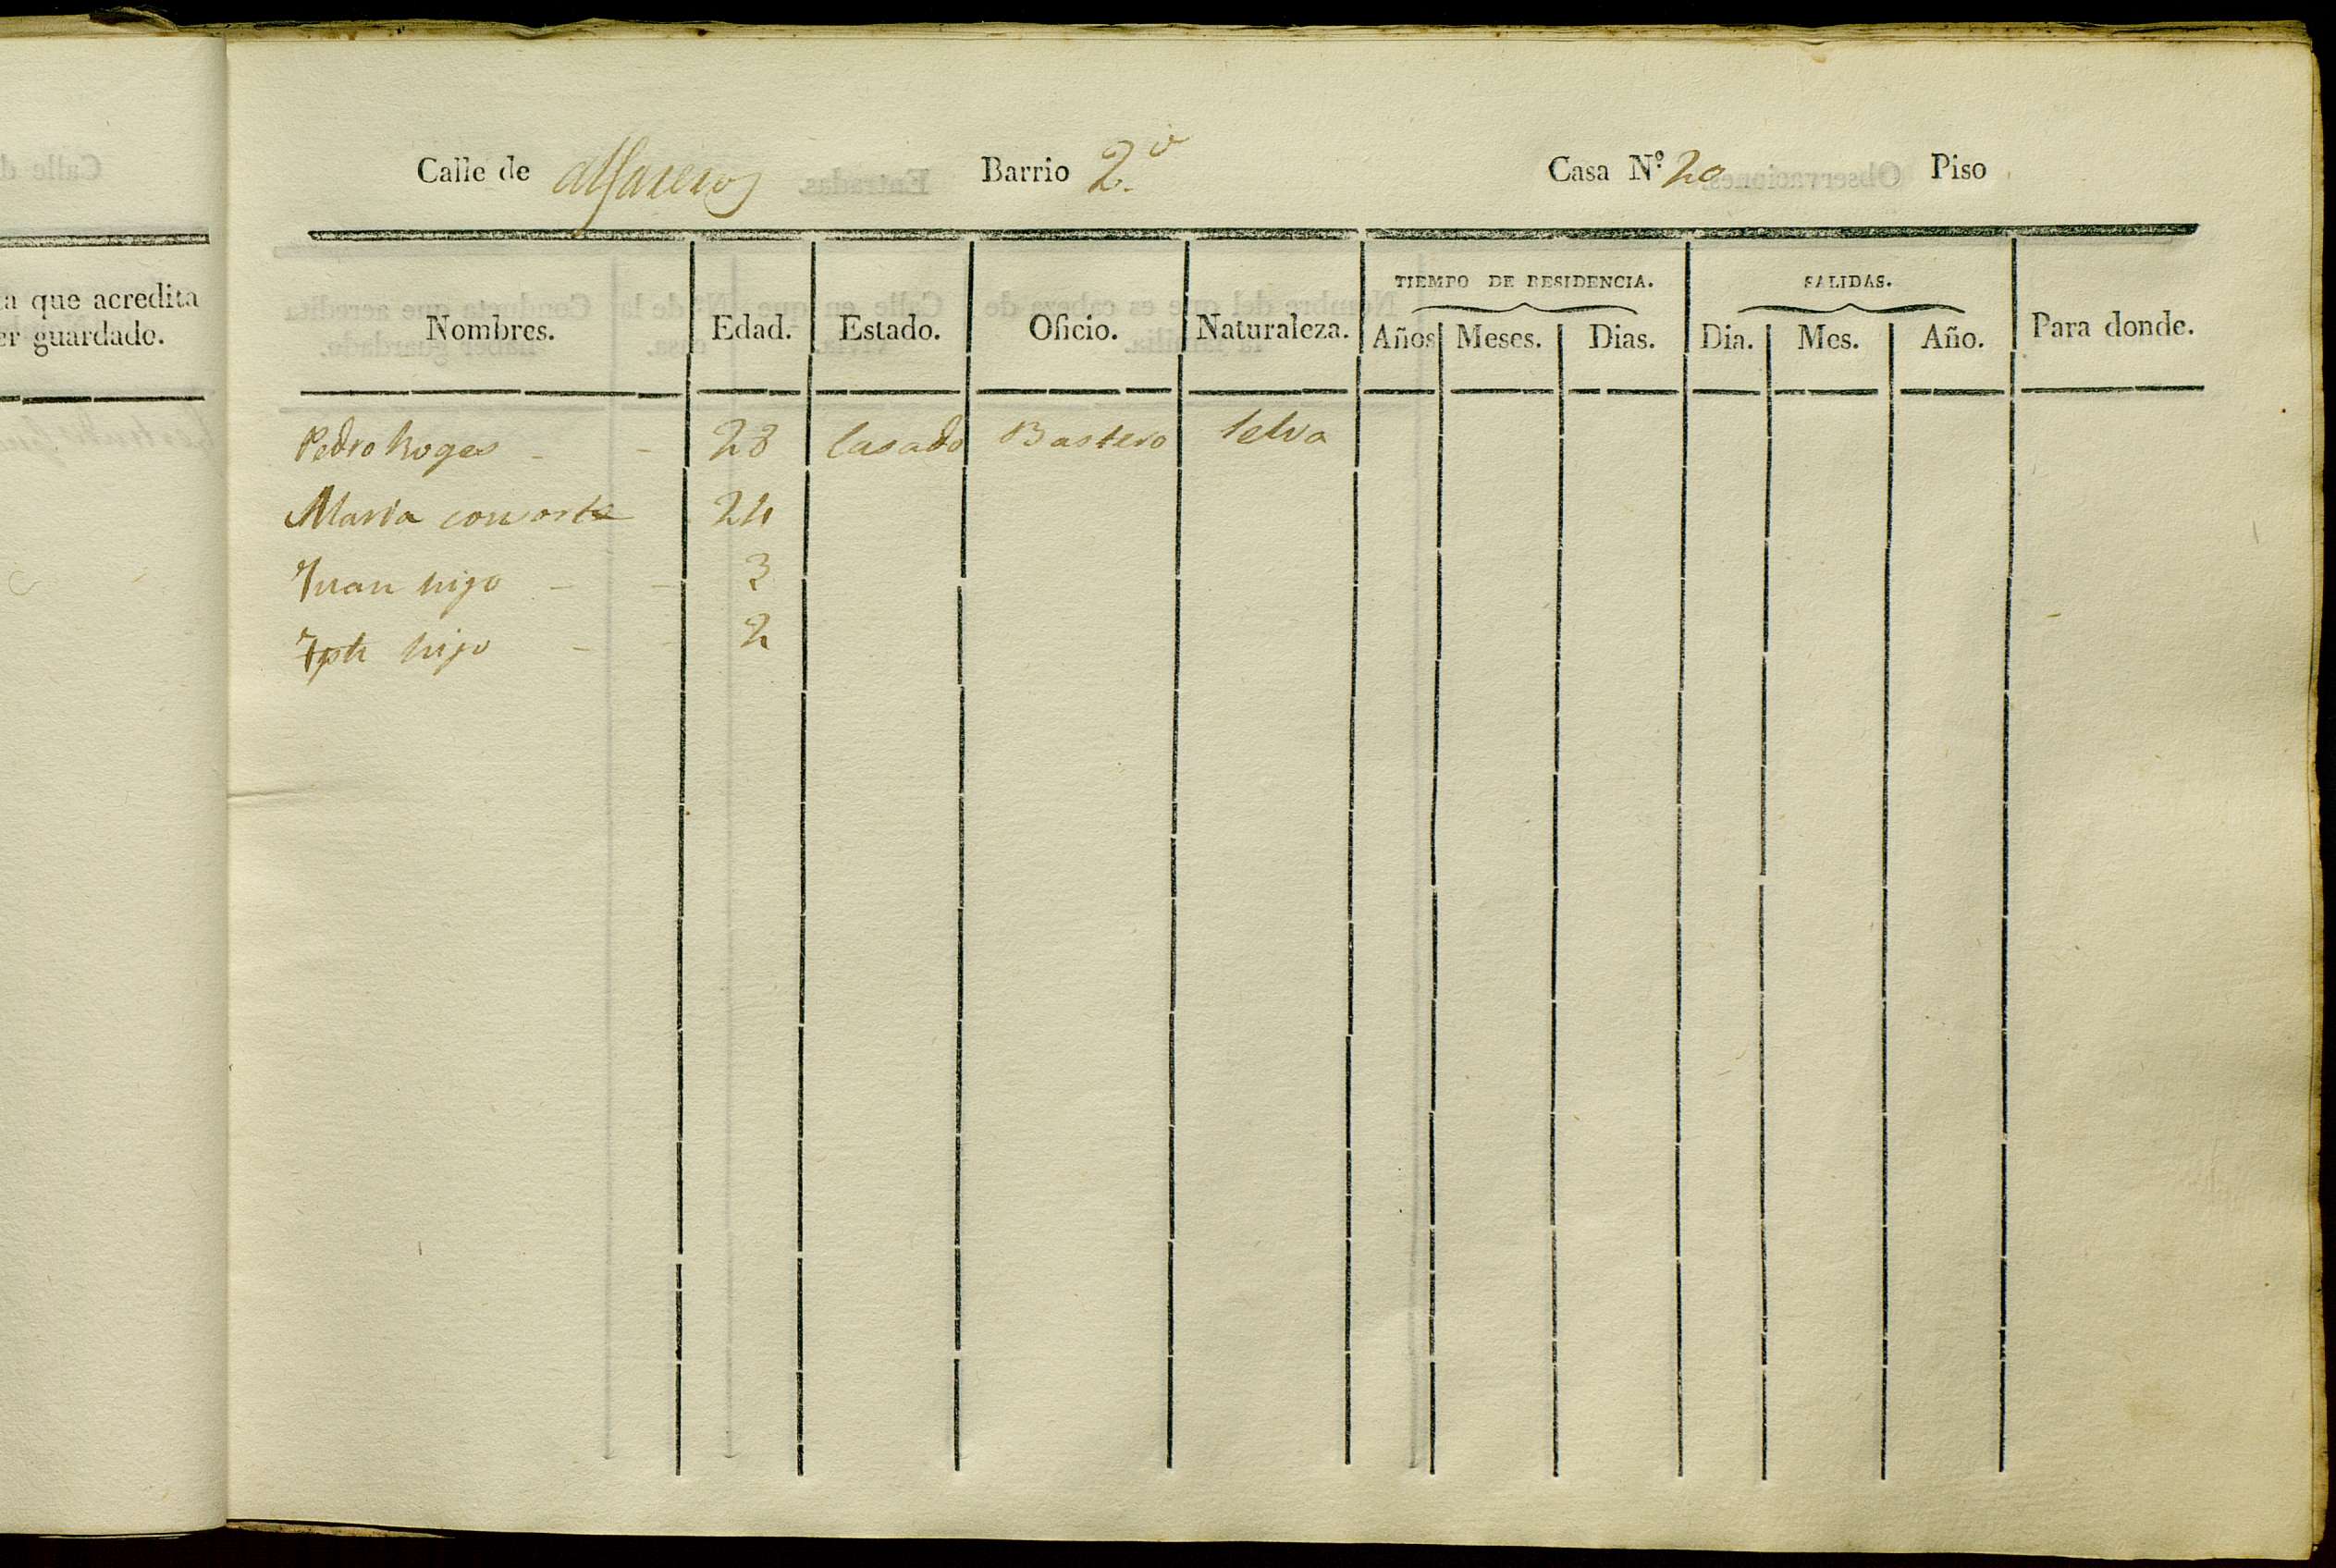 a que acredita
er guardado.
Calle de Alfareros Barrio 2.º Casa N.º 20 Piso
TIEMPO DE RESIDENCIA. SALIDAS.
Nombres. Edad. Estado. Oficio. Naturaleza. Años Meses. Dias. Dia. Mes. Año. Para donde.
Pedro Roges - - 28 Casado Bastero Selva
Maria consorte 24
Juan hijo - - 3
Jph hijo - - 2